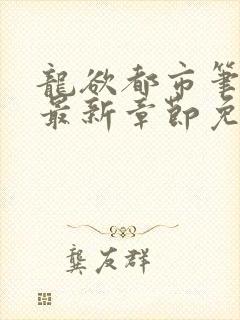 龍欲都市筆
最新章節免
龔友群